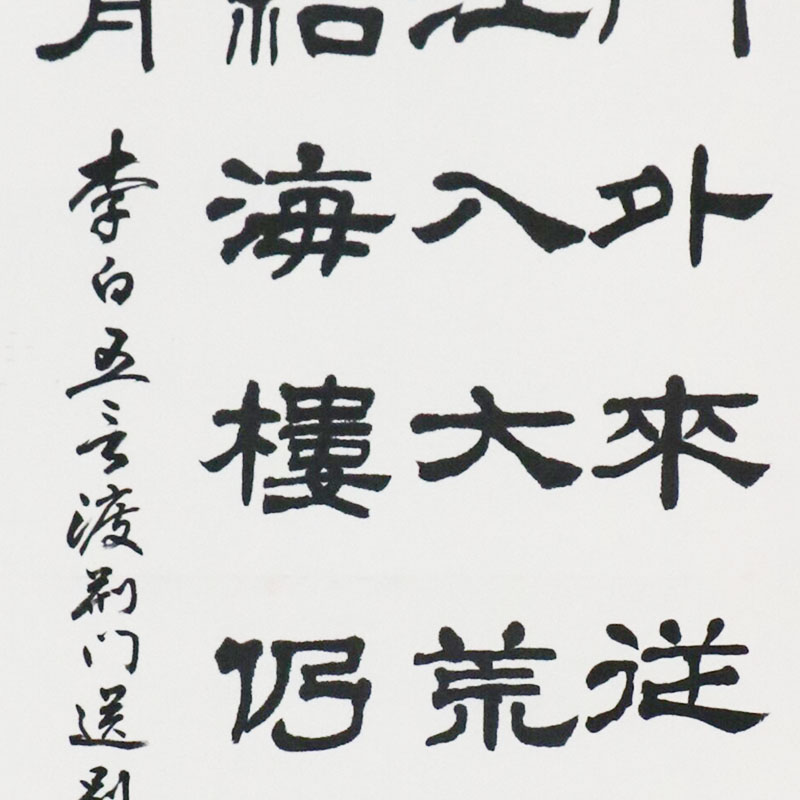 外來從
入大荒
海樓仍
李白五言渡荆门送别